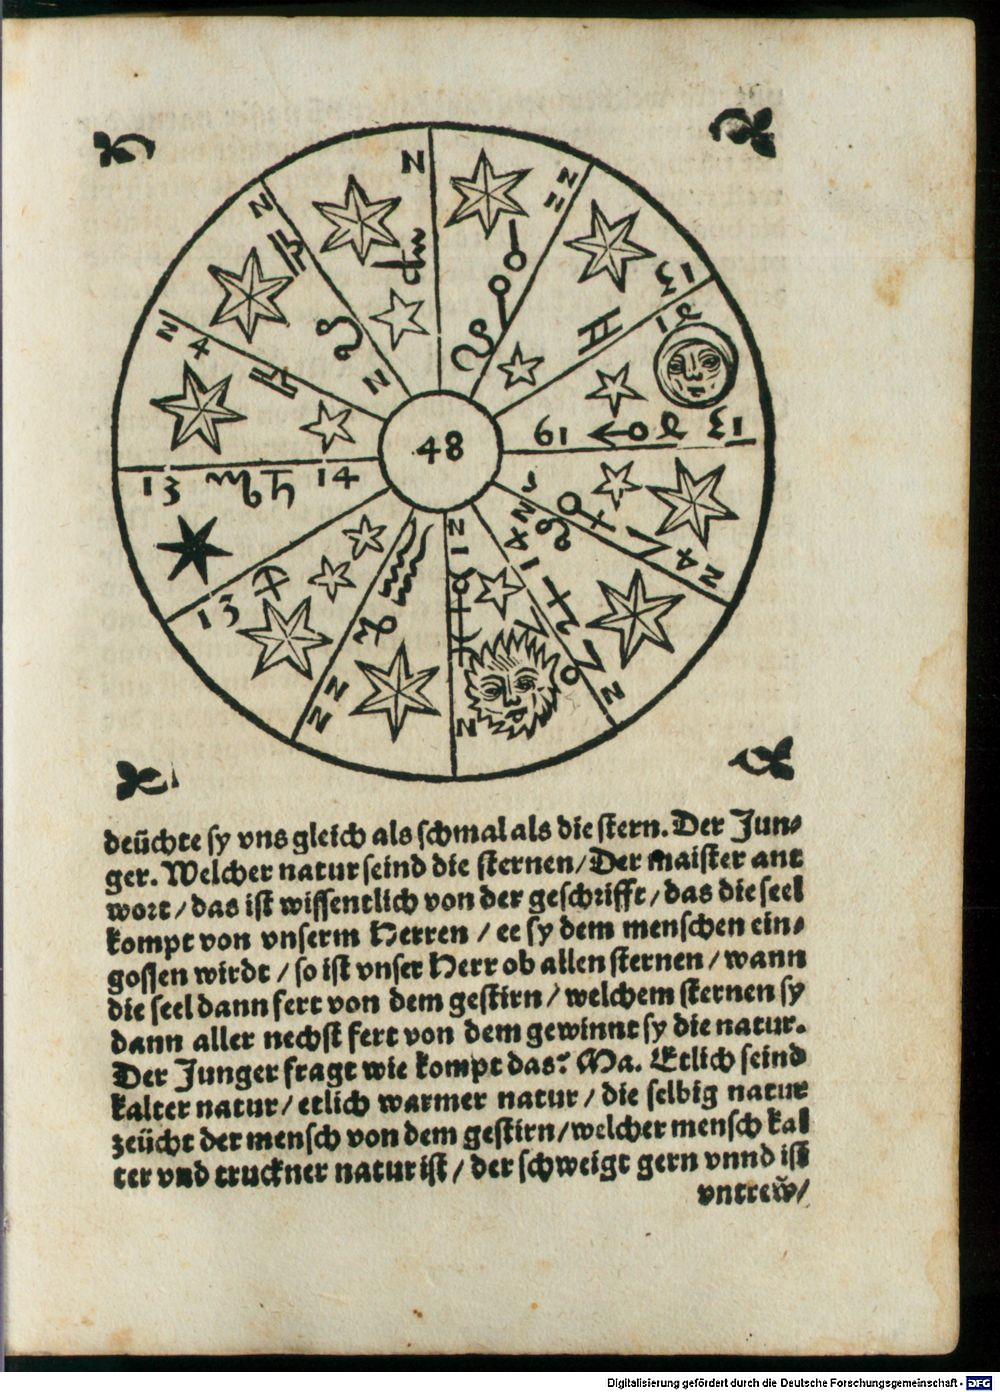 48
deüchte sy vns gleich als schmal als die stern. Der Jun⸗
ger. Welcher natur seind die sternen / Der maister ant
wort / das ist wissentlich von der geschrifft / das die seel
kompt von vnserm Herren / ee sy dem menschen ein⸗
gossen wirdt / so ist vnser Herr ob allen sternen / wann
die seel dann fert von dem gestirn / welchem sternen sy
dann aller nechst fert von dem gewinnt sy die natur.
Der Junger fragt wie kompt das? Ma. Etlich seind
kalter natur / etlich warmer natur / die selbig natur
zeücht der mensch von dem gestirn / welcher mensch kal
ter vnd truckner natur ist / der schweigt gern vnnd ist
vntrew̃ /
Digitalisierung gefördert durch die Deutsche Forschungsgemeinschaft - DFG